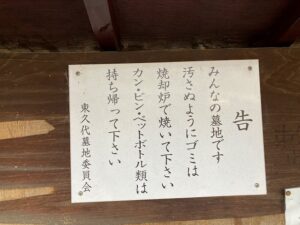 告
みんなの墓地です
汚さぬようにゴミは
焼却炉で焼いて下さい
カン・ビン・ペットボトル類は
持ち帰って下さい
東久代墓地委員会